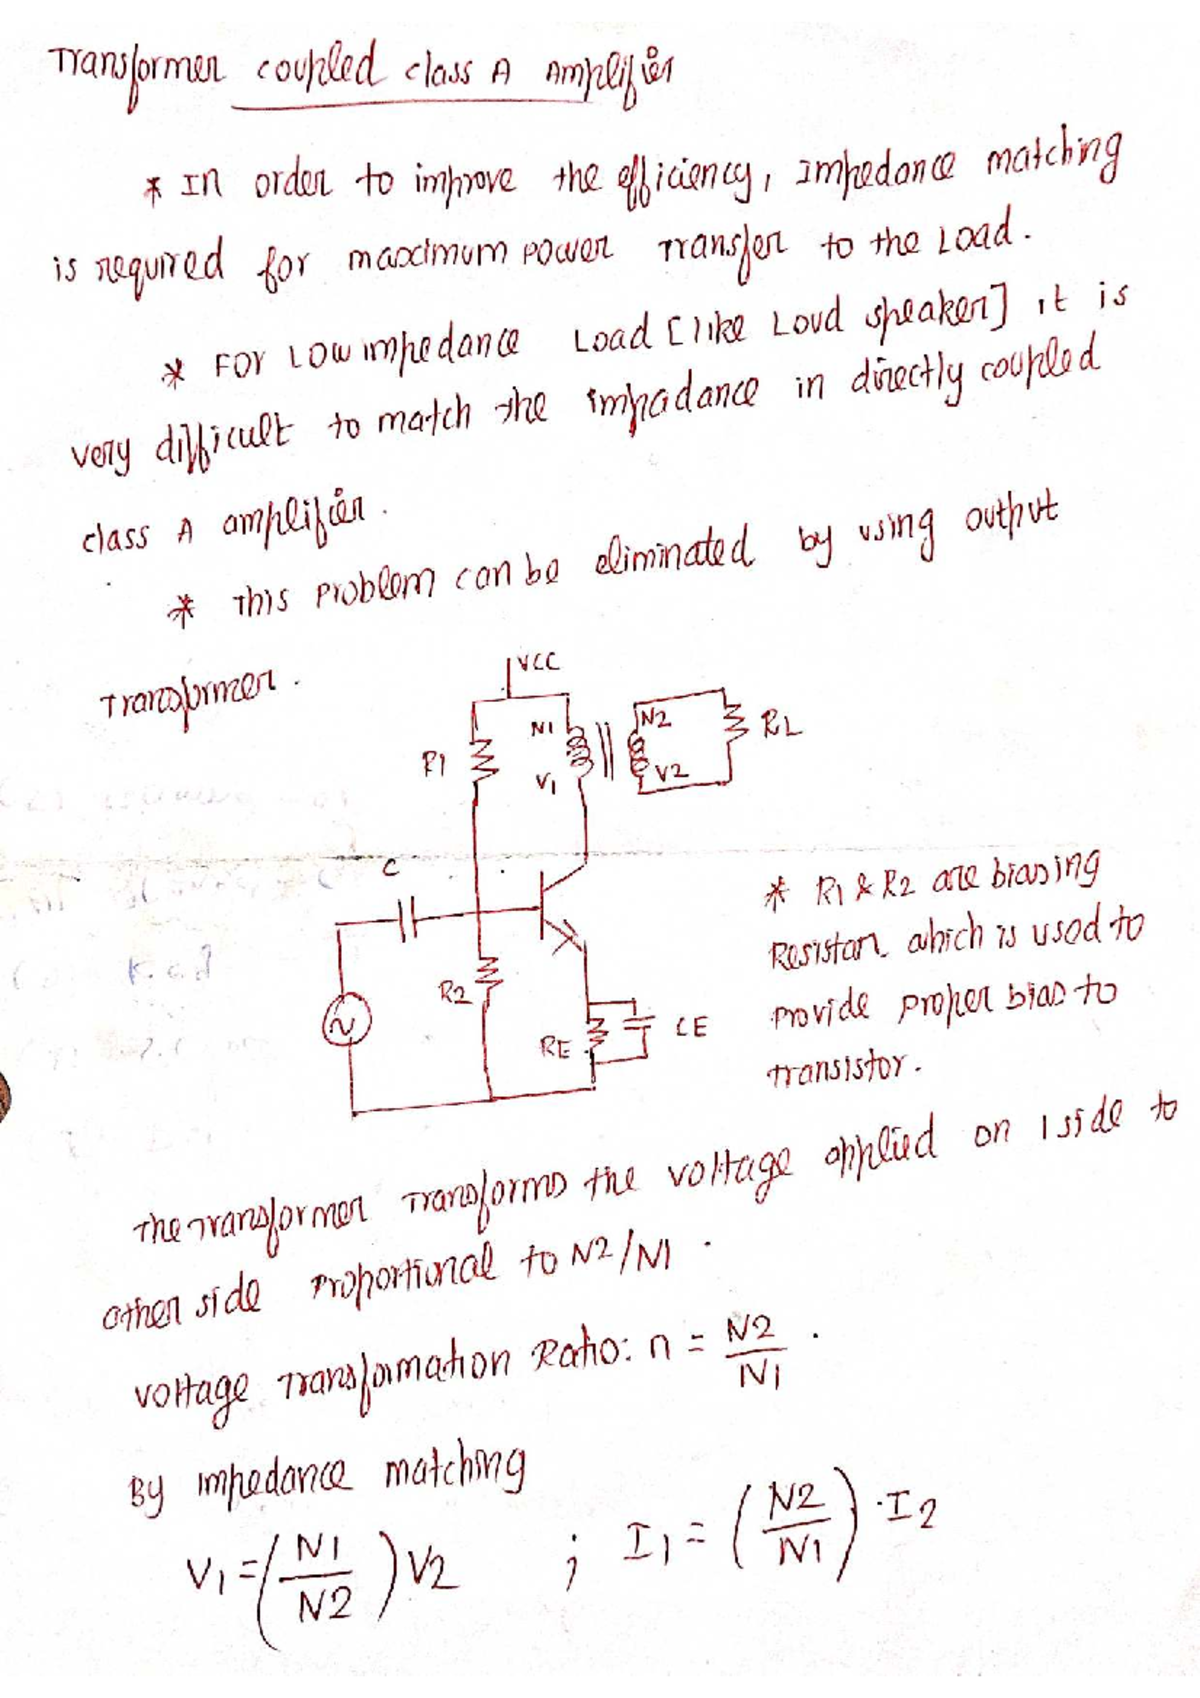 Transformer coupled class A Amplifier
* In order to improve the efficiency, Impedance matching
is required for maximum power Transfer to the Load.
* For Low impedance Load [like Loud speaker] it is
very difficult to match the impadance in directly coupled
class A amplifier.
* This Problem can be eliminated by using output
Transformer.
VCC
R1
N1
V1
N2
V2
RL
C
R2
RE
CE
* R1 & R2 are biasing
Resistor which is used to
Provide Proper bias to
transistor.
The Transformer Transforms the voltage applied on 1 side to
other side Proportional to N2/N1.
voltage Transformation Ratio: n = N2/N1.
By impedance matching
V1 = (N1/N2) V2 ; I1 = (N2/N1) · I2